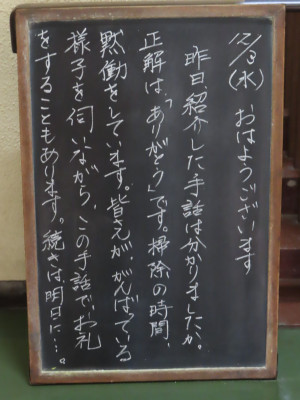 12/3(水) おはようございます
昨日、紹介した手話は分かりましたか。
正解は、「ありがとう」です。掃除の時間、
黙働をしています。皆さんが、がんばっている
様子を伺いながら、この手話で、お礼
をすることもあります。続きは、明日に…。